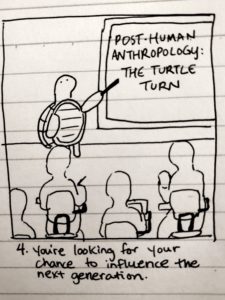 POST-HUMAN
ANTHROPOLOGY:
THE TURTLE
TURN
4. You're looking for your
chance to influence the
next generation.